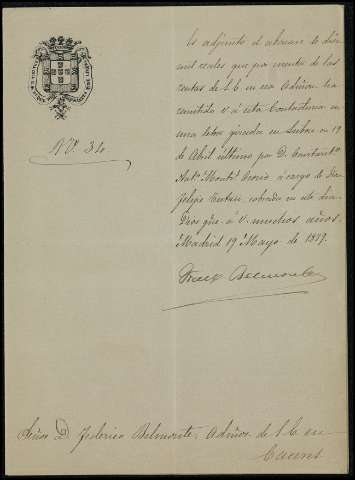 Nº 34
Es adjunto el abonaré de diez
mil reales que por cuenta de las
rentas de S.E. en esa Admon. ha
remitido V. á esta Contaduria en
una letra girada en
de Abril último por D. Constantº
Antº Montil á cargo de Dn
Felipe cobrada en este dia
Dios gue. á V. muchos años.
Madrid 19 Mayo de 1879.
Belmonte
Señor D. Federico Belmonte, Admor. de S.E. en
Caceres